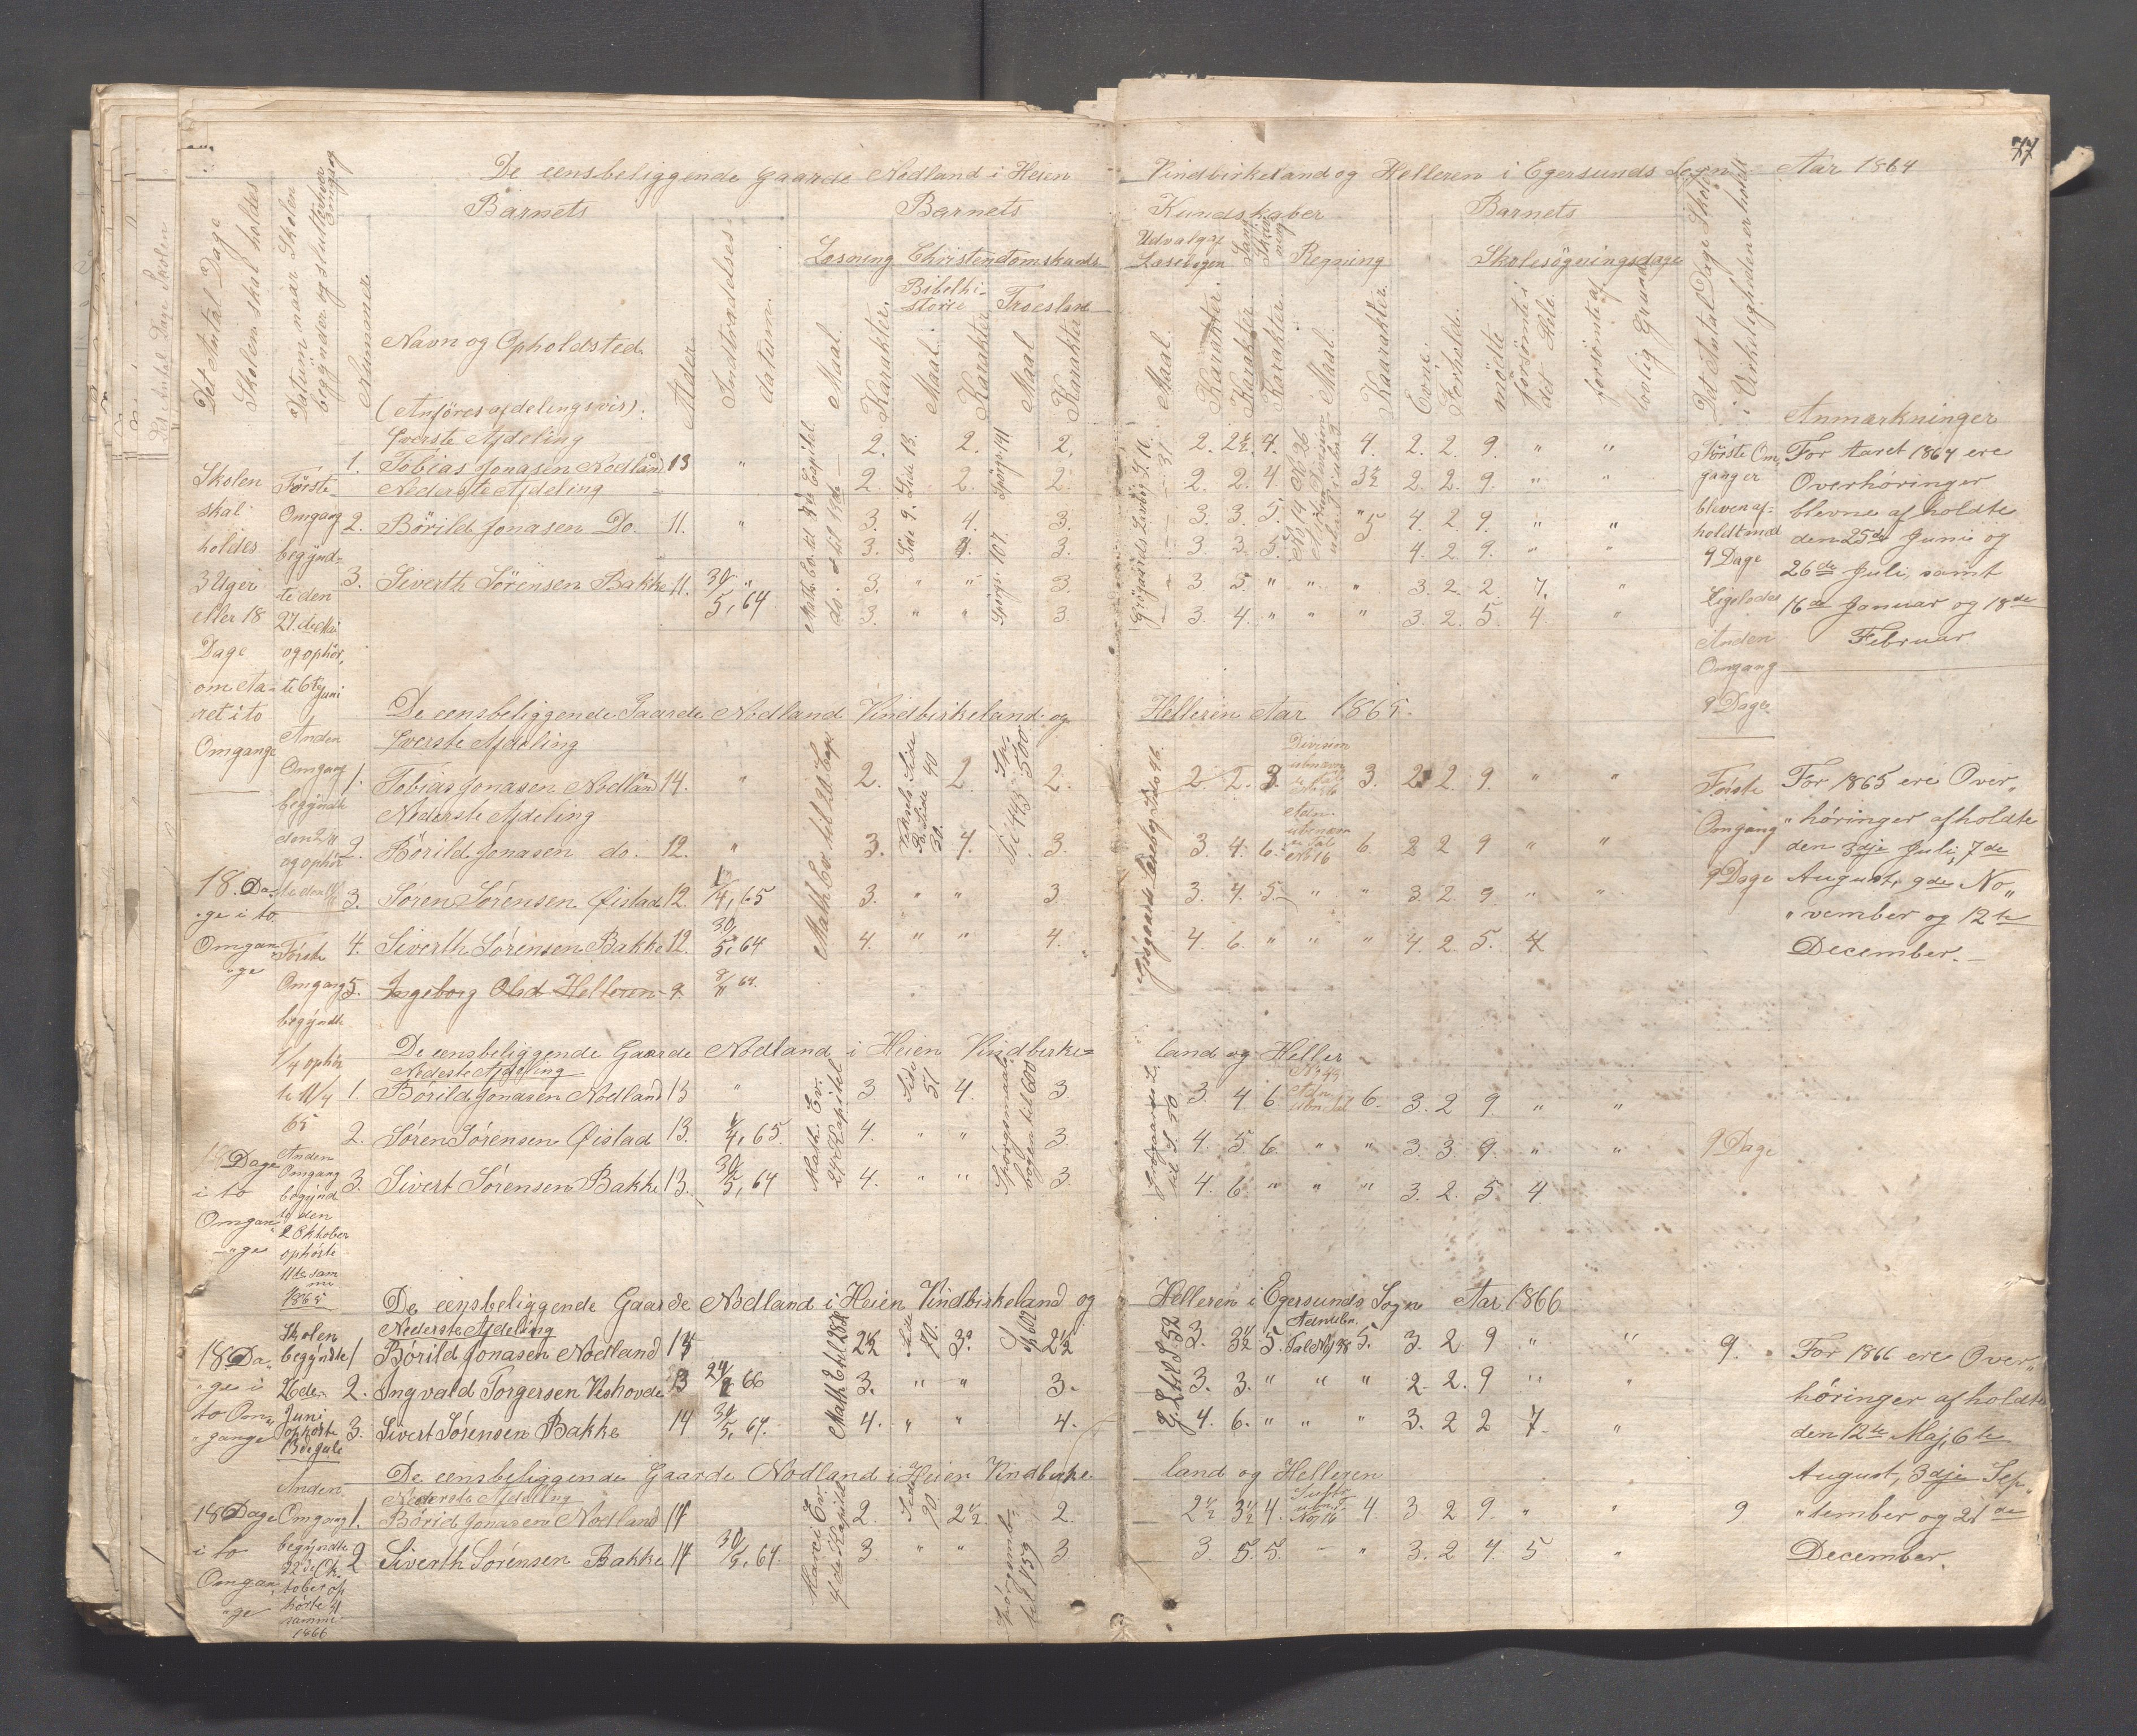 77
De eensbeliggende Gaarde Nodland i Heien Vindbirkeland og Helleren i Egersunds Sogn Aar 1864
Det Antal Dage Skolen skal holdes
Datum naar Skolen begynder og slutter hver Omgang
Nummer
Barnets
Navn og Opholdsted
(Anföres afdelingsvis).
Alder
Indtrædelses datum.
Barnets Kundskaber
Læsning Christendomskunds
Maal. Karakter.
Bibelhistorie
Maal. Karakter.
Troeslære
Maal Karakter
Udvalg af Læsebogen
Maal. Karakter.
Sang Karakter.
Skrivning Karakter.
Regning
Maal. Karakter.
Evne.
Forhold.
Barnets
Skolesögningsdage
mödte
forsömte i det Hele.
forsömte af lovlig Grund
Det Antal Dage Skole i Virkeligheden er holdt
Anmærkninger
Skolen skal holdes 3 Uger eller 18 Dage om Aaret i to Omgange
Förste Omgang begyndte den 27. de Mai og ophörte 6te Juni
Överste Afdeling
1. Tobias Jonasen Nodland 13 " 2. 2. 2. 2. 2½. 4. 4. 2. 2. 9. " "
2. 2. 2. 2. 2. 4. 3½ 2. 2. 9. " "
Nederste Afdeling
2. Börild Jonasen Do. 11. " 3. 4. 3. 3. 3. 5. 5 4. 2. 9. " "
3. 4. 3. 3. 3. 5. 4. 2. 9. " "
3. Siverth Sörensen Bakke 11. 30/5, 64 3. " " 3. 3 5 " " " 3. 2. 2. 7. "
3. " " 3 3. 4. " " " 3. 2. 5. 4. "
Förste Omgang er bleven afholdt med 9 Dage
Ligeledes Anden Omgang 9 Dage
For Aaret 1864 ere
Overhöringer
blevne afholdte
den 25de Juni og
26de Juli, samt
16de Januar og 18de
Februar.
De eensbeliggende Gaarde Nodland Vindbirkeland og Helleren Aar 1865.
Anden Omgang begyndte
Överste Afdeling
1. Tobias Jonasen Nodland 14. " 2. 2. 2. 2. 2. 3. 3. 2 2. 9. " "
Nederste Afdeling
2. Börild Jonasen do. 12. " 3. 4. 3. 3. 4. 6. 6. 2 2 9 " "
3. Sören Sörensen Öistad 12. 1/4, 65 3. " " 3 3. 4. 5. " " 3. 2. 9 " "
4. Siverth Sörensen Bakke 12. 30/5, 64 4. " " 4. 4. 6. " " " 4. 2. 5. 4
5. Ingeborg Olsd Helleren 9.
Math. Ev. til 20 Cap.
18 Dage i to Omgange
Förste Omgang begyndte 1/4 ophörte 11/4 65
Förste Omgang 9 Dage
For 1865 ere Over„
„höringer afholdte
den 3dje Juli, 7de
August, 9de No„
„vember og 12te
December.
De eensbeliggende Gaarde Nodland i Heien Vindbirke=land og Heller
Nedeste Afdeling
1. Börild Jonasen Nodland 13 " 3 4. 3 3. 4 6. 6. 3. 2 9 " "
2. Sören Sörensen Öistad 13. 1/4, 65. 4. " " 3. 4. 5 6. " " 3. 3. 9. " "
3. Sivert Sörensen Bakke 13. 30/5, 64 4. " " 3. 4. 6. " " " 3. 2. 5 4.
Dage i to Omgange
Anden Omgang begyndte den 2 Oktober ophörte 11te samme 1865
9 Dage
De eensbeliggende Gaarde Nodland i Heien Vindbirkeland og Helleren i Egersunds Sogn Aar 1866
Nederste Afdeling
1 Börild Jonasen Nodland 14 2½ 3. 2½ 3. 3½ 5 5. 3. 2 9 " " 9.
2. Ingvald Torgersen Veshovde 13 3. " " 3. 3. 3. " " " 2. 2. 9 " "
3. Sivert Sörensen Bakke 14 30/5, 64. 4. " " 4. 4. 6. " " " 3. 2 2 7. "
18 Dage i to Omgange
Skolen begyndte
Juni ophörte
For 1866 ere Over„
höringer afholdte
den 12te Maj, 6te
August, 3dje Sep„
„tember og 21de
December.
De eensbeliggende Gaarde Nodland i Heien Vindbirkeland og Helleren
Nederste Afdeling
1. Börild Jonasen Nodland 14 2. 2½. 2. 2½ 3½ 4. 4. 3 2 9. " " 9
2. Siverth Sörensen Bakke 14 30/5, 64. 3. " " 3 3. 5. 5. " " 3. 2 4. 5 "
18 Dage i to Omgange
Anden Omgang begyndte 22de Oktober ophörte 31 samme 1866